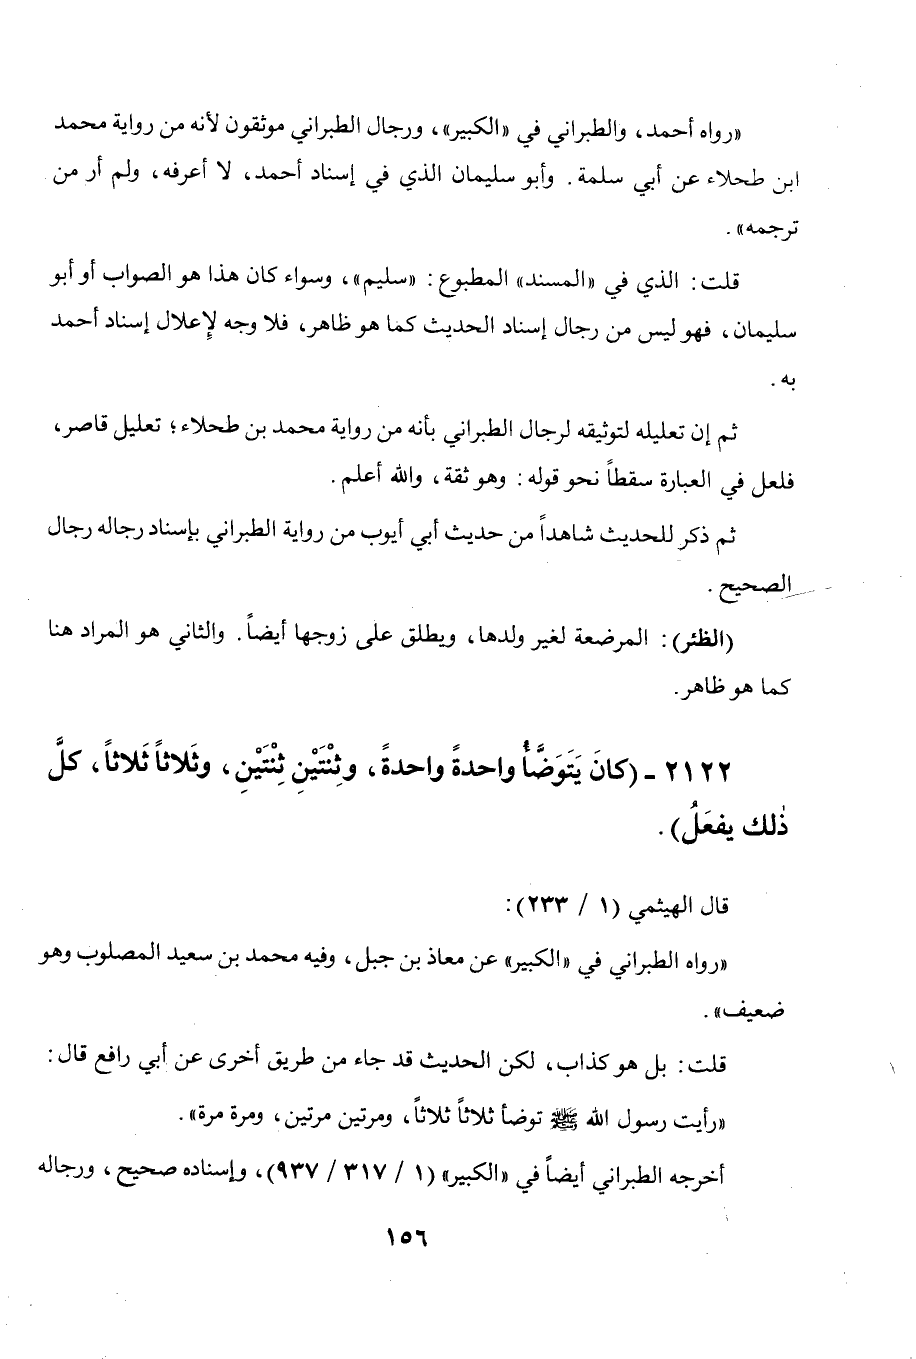 «رواه أحمد، والطبراني في «الكبير»، ورجال الطبراني موثقون لأنه من رواية محمد
ابن طحلاء عن أبي سلمة. وأبو سليمان الذي في إسناد أحمد، لا أعرفه، ولم أر من
ترجمه».
قلت: الذي في «المسند» المطبوع: «سليم»، وسواء كان هذا هو الصواب أو أبو
سليمان، فهو ليس من رجال إسناد الحديث كما هو ظاهر، فلا وجه لإعلال إسناد أحمد
به.
ثم إن تعليله لتوثيقه لرجال الطبراني بأنه من رواية محمد بن طحلاء؛ تعليل قاصر،
فلعل في العبارة سقطاً نحو قوله: وهو ثقة، والله أعلم.
ثم ذكر للحديث شاهداً من حديث أبي أيوب من رواية الطبراني بإسناد رجاله رجال
الصحيح.
(الظئر): المرضعة لغير ولدها، ويطلق على زوجها أيضاً. والثاني هو المراد هنا
كما هو ظاهر.
٢١٢٢ - (كانَ يَتَوَضَّأُ واحدةً واحدةً، وثِنْتَيْنِ ثِنْتَيْنِ، وثَلاثاً ثَلاثاً، كلَّ
ذٰلك يفعَلُ).
قال الهيثمي (١ / ٢٣٣):
«رواه الطبراني في «الكبير» عن معاذ بن جبل، وفيه محمد بن سعيد المصلوب وهو
ضعيف».
قلت: بل هو كذاب، لكن الحديث قد جاء من طريق أخرى عن أبي رافع قال:
«رأيت رسول الله ﷺ توضأ ثلاثاً ثلاثاً، ومرتين مرتين، ومرة مرة».
أخرجه الطبراني أيضاً في «الكبير» (١ / ٣١٧ / ٩٣٧)، وإسناده صحيح، ورجاله
١٥٦